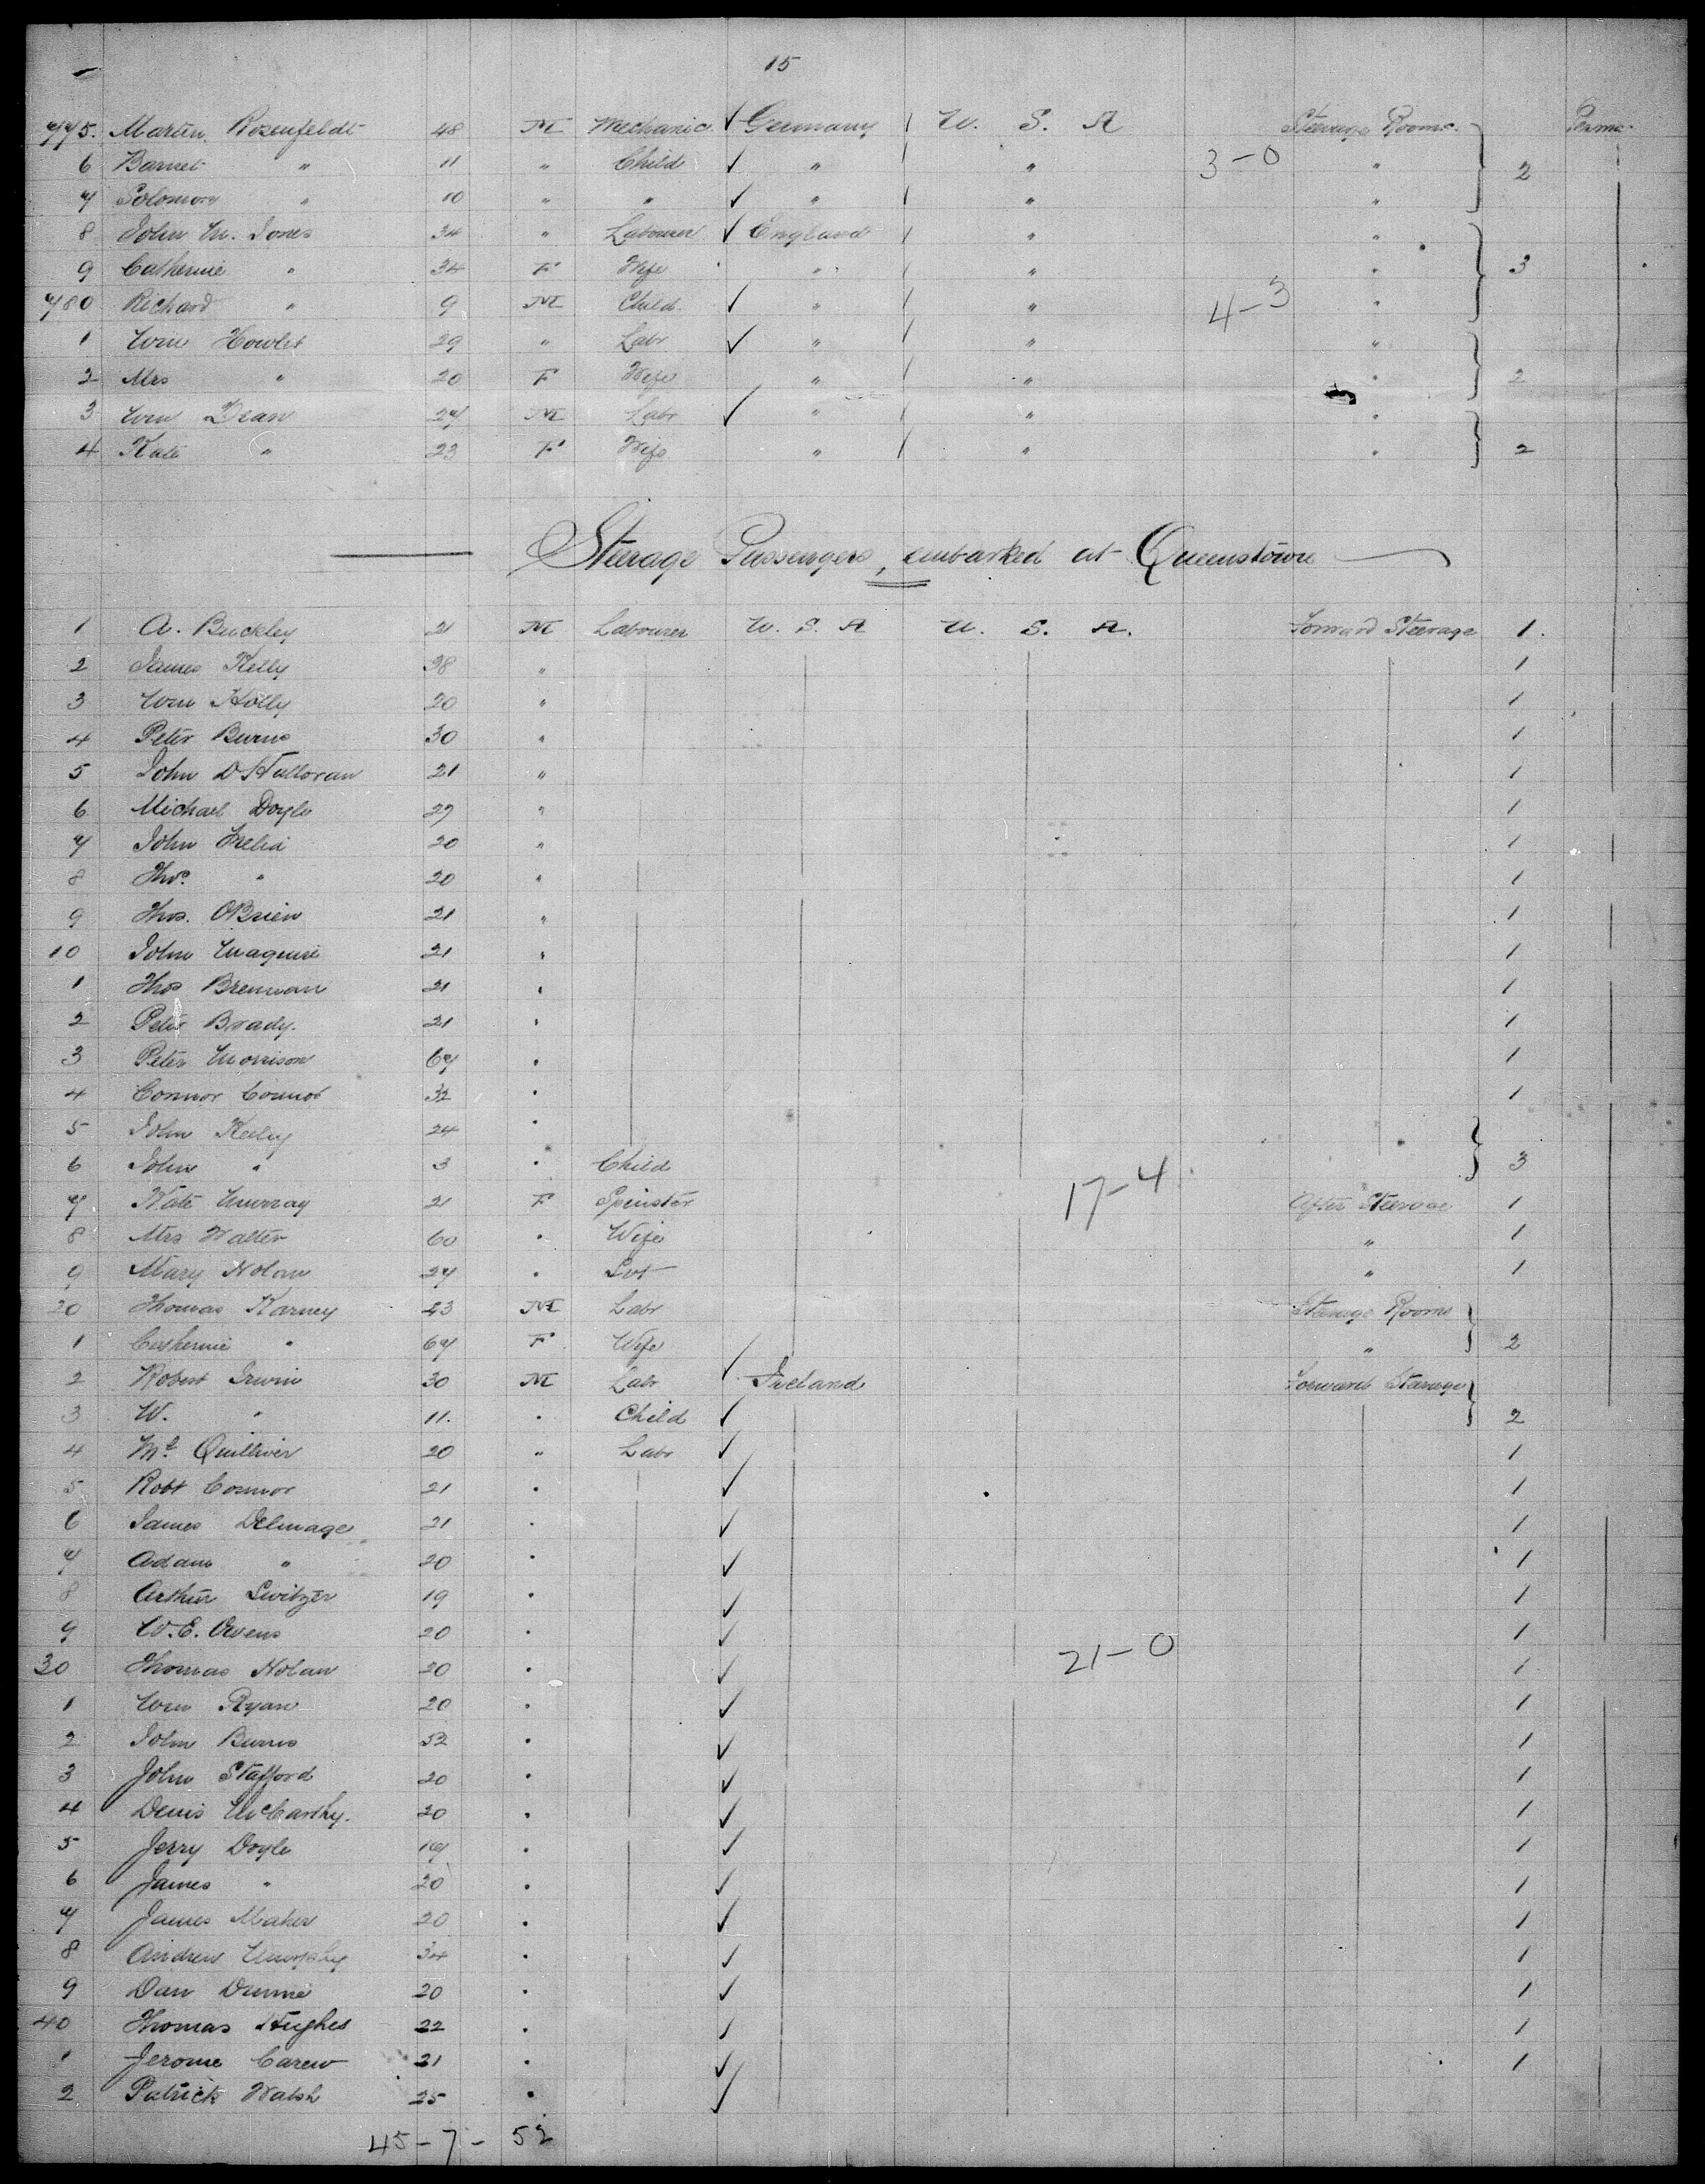 15
775. Martin Rosenfeldt 48 M Mechanic ✓ Germany / U. S. A Steerage Rooms Perma
6 Barnet " 11 " Child ✓ " / " 3-0 " 2
7 Solomon " 10 " " ✓ " / " "
8 John M. Jones 34 " Labourer ✓ England / " "
9 Catherine " 34 F Wife " / " " 3
780 Richard " 9 M Child ✓ " / " 4-3 "
1 Wm Howlet 29 " Labr ✓ " / " "
2 Mrs " 20 F Wife " / " " 2
3 Wm Dean 27 M Labr ✓ " / " "
4 Kate " 23 F Wife " / " " 2
Steerage Passengers, embarked at Queenstown
1 A. Buckley 21 M Labourer U. S. A U. S. A. Forward Steerage 1.
2 James Kelly 38 " 1
3 Wm Holly 20 " 1
4 Peter Burns 30 " 1
5 John O'Halloran 21 " 1
6 Michael Doyle 27 " 1
7 John 20 " 1
8 Thos. " 20 " 1
9 Thos. OBrien 21 " 1
10 John Maguire 21 " 1
1 Thos Brennan 21 " 1
2 Peter Brady. 21 " 1
3 Peter Morrison 67 " 1
4 Connor Connor 32 " 1
5 John Keely 24 "
6 John " 3 " Child 3
7 Kate Murray 21 F Spinster 17-4 After Steerage 1
8 Mrs Walter 60 " Wife " 1
9 Mary Nolan 27 " Svt " 1
20 Thomas Karney 43 M Labr Steerage Rooms
1 Catherine " 67 F Wife " 2
2 Robert Irwin 30 M Labr ✓ Ireland Forward Steerage
3 W. " 11. " Child ✓ 2
4 Mt Quilliver 20 " Labr ✓ 1
5 Robt Connor 21 " ✓ 1
6 James Delmage 21 " ✓ 1
7 Adam " 20 " ✓ 1
8 Arthur Switzer 19 " ✓ 1
9 W. E. Owens 20 " ✓ 1
30 Thomas Nolan 20 " ✓ 21-0 1
1 Wm Ryan 20 " ✓ 1
2 John Burns 32 " ✓ 1
3 John Stafford 20 " ✓ 1
4 Denis McCarthy. 20 " ✓ 1
5 Jerry Doyle 19 " ✓ 1
6 James " 20 " ✓ 1
7 James Maher 20 " ✓ 1
8 Andrew Murphy 34 " ✓ 1
9 Dan Dunne 20 " ✓ 1
40 Thomas Hughes 22 " ✓ 1
1 Jerome Carew 21 " ✓ 1
2 Patrick Walsh 25 " ✓
45-7-52